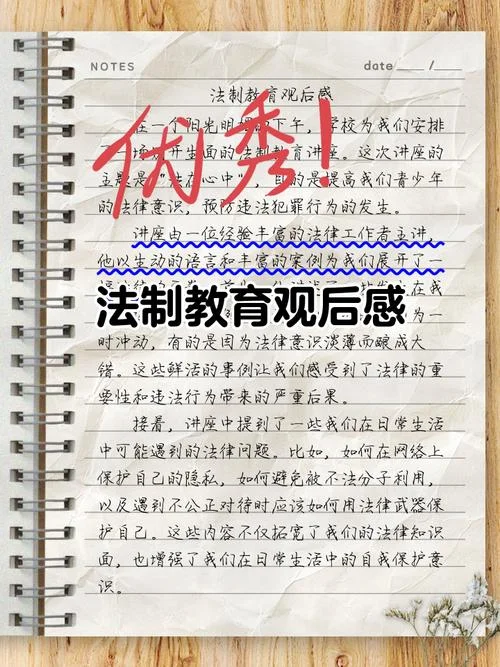 NOTES
date ____ / ____
法制教育观后感
优秀!
在一个阳光明媚的下午，学校为我们安排
了一场别开生面的法制教育讲座。这次讲座的
主题是"法在心中"，目的是提高我们青少年
的法律意识，预防违法犯罪行为的发生。
讲座由一位经验丰富的法律工作者主讲，
他以生动的语言和丰富的案例为我们展开了一
在我
法制教育观后感
为一
时冲动，有的是因为法律意识淡薄而酿成大
错。这些鲜活的事例让我们感受到了法律的重
要性和违法行为带来的严重后果。
接着，讲座中提到了一些我们在日常生活
中可能遇到的法律问题。比如，如何在网络上
保护自己的隐私，如何避免被不法分子利用，
以及遇到不公正对待时应该如何用法律武器保
护自己。这些内容不仅拓宽了我们的法律知识
面，也增强了我们在日常生活中的自我保护意
识。